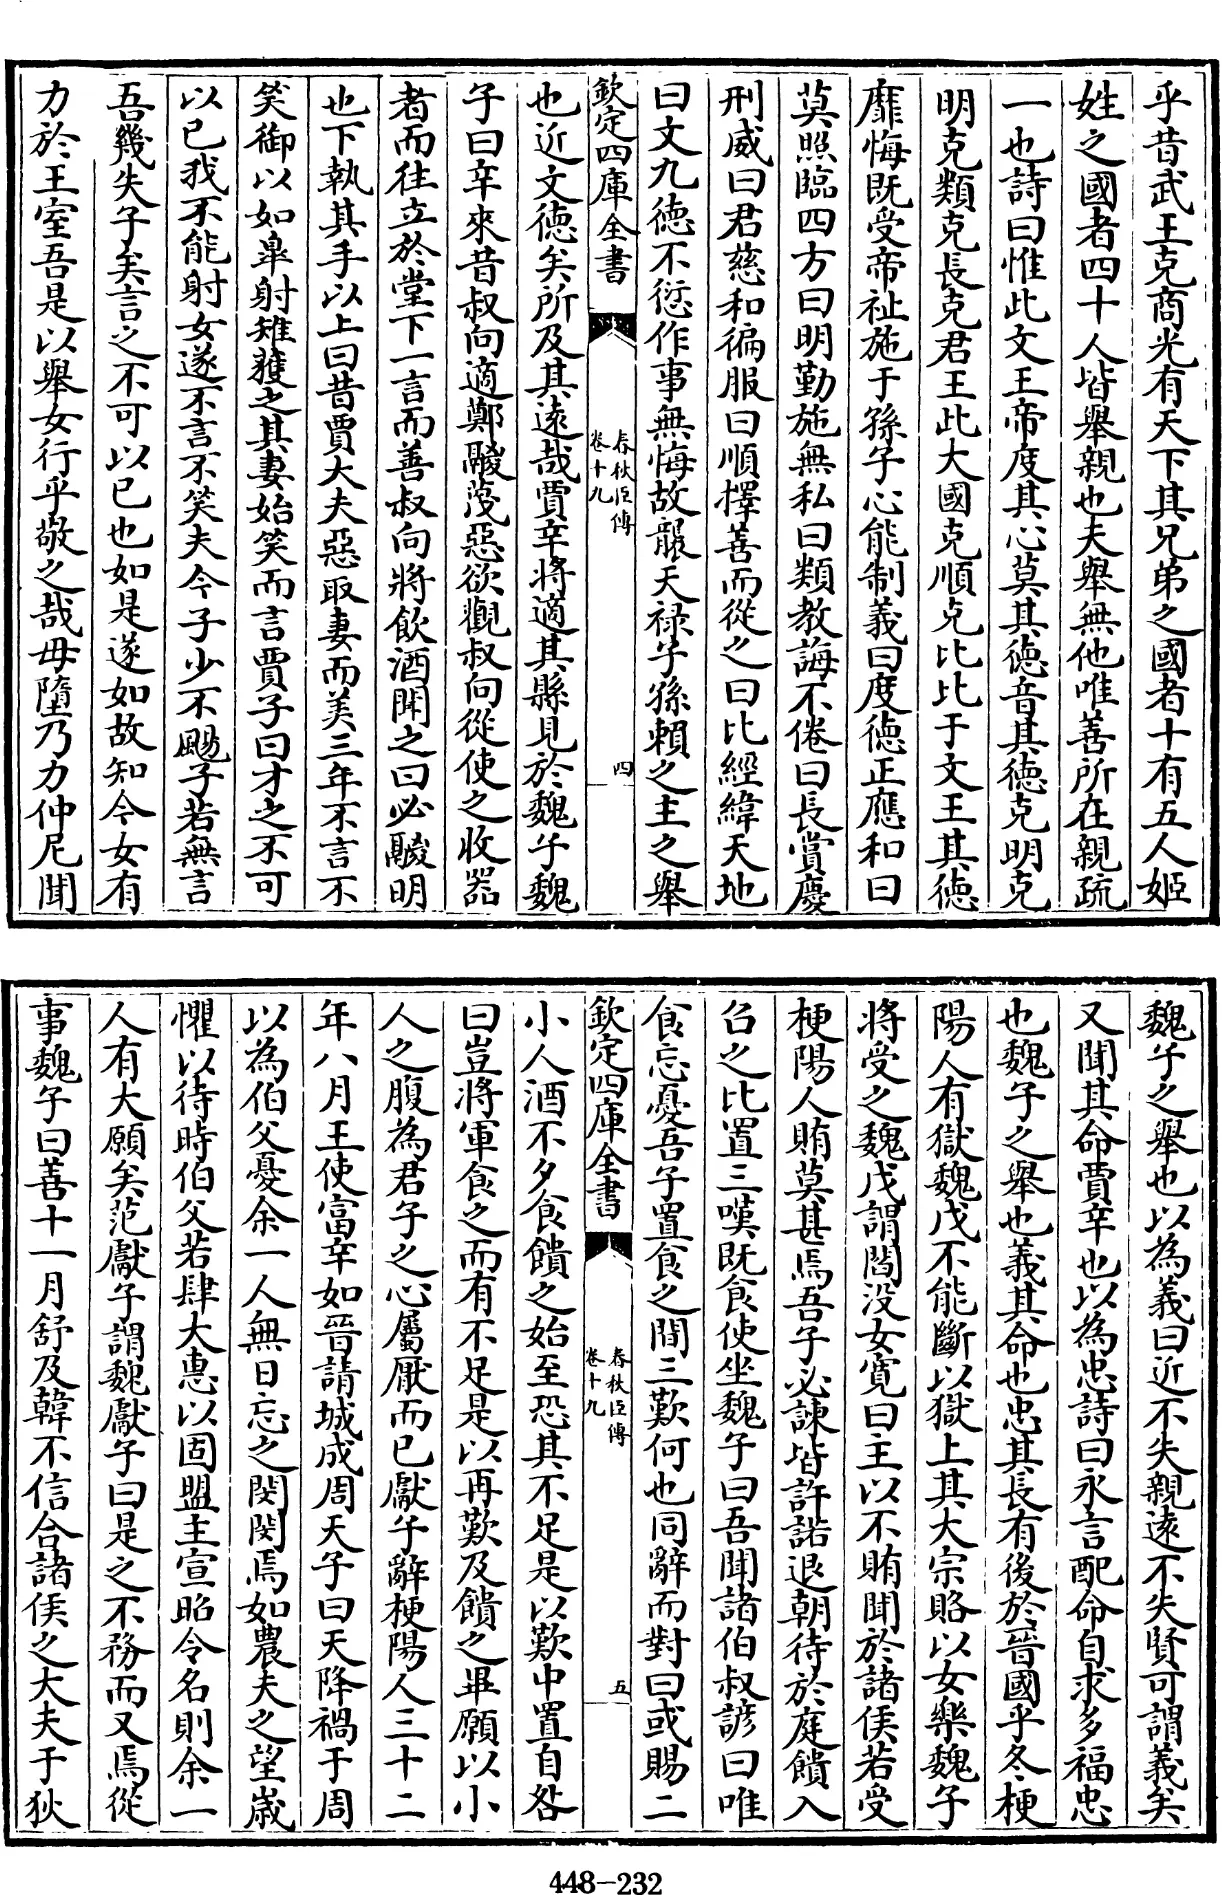 乎昔武王克商光有天下其兄弟之國者十有五人姬
姓之國者四十人皆舉親也夫舉無他唯善所在親疏
一也詩曰惟此文王帝度其心莫其德音其德克明克
明克類克長克君王此大國克順克比比于文王其德
靡悔既受帝祉施于孫子心能制義曰度德正應和曰
莫照臨四方曰明勤施無私曰類教誨不倦曰長賞慶
刑威曰君慈和徧服曰順擇善而從之曰比經緯天地
曰文九德不愆作事無悔故襲天祿子孫賴之主之舉
欽定四庫全書
春秋臣傳
卷十九
四
也近文德矣所及其遠哉賈辛將適其縣見於魏子魏
子曰辛來昔叔向適鄭鬷蔑惡欲觀叔向從使之收器
者而往立於堂下一言而善叔向將飲酒聞之曰必鬷明
也下執其手以上曰昔賈大夫惡取妻而美三年不言不
笑御以如皐射雉獲之其妻始笑而言賈子曰才之不可
以已我不能射女遂不言不笑夫今子少不颺子若無言
吾幾失子矣言之不可以已也如是遂如故知今女有
力於王室吾是以舉女行乎敬之哉毋墮乃力仲尼聞
魏子之舉也以為義曰近不失親遠不失賢可謂義矣
又聞其命賈辛也以為忠詩曰永言配命自求多福忠
也魏子之舉也義其命也忠其長有後於晉國乎冬梗
陽人有獄魏戊不能斷以獄上其大宗賂以女樂魏子
將受之魏戊謂閻沒女寬曰主以不賄聞於諸侯若受
梗陽人賄莫甚焉吾子必諫皆許諾退朝待於庭饋入
召之比置三嘆既食使坐魏子曰吾聞諸伯叔諺曰唯
食忘憂吾子置食之間三歎何也同辭而對曰或賜二
欽定四庫全書
春秋臣傳
卷十九
五
小人酒不夕食饋之始至恐其不足是以歎中置自咎
曰豈將軍食之而有不足是以再歎及饋之畢願以小
人之腹為君子之心屬厭而已獻子辭梗陽人三十二
年八月王使富辛如晉請城成周天子曰天降禍于周
以為伯父憂余一人無日忘之閔閔焉如農夫之望歲
懼以待時伯父若肆大惠以固盟主宣昭令名則余一
人有大願矣范獻子謂魏獻子曰是之不務而又焉從
事魏子曰善十一月舒及韓不信合諸侯之大夫于狄
448-232